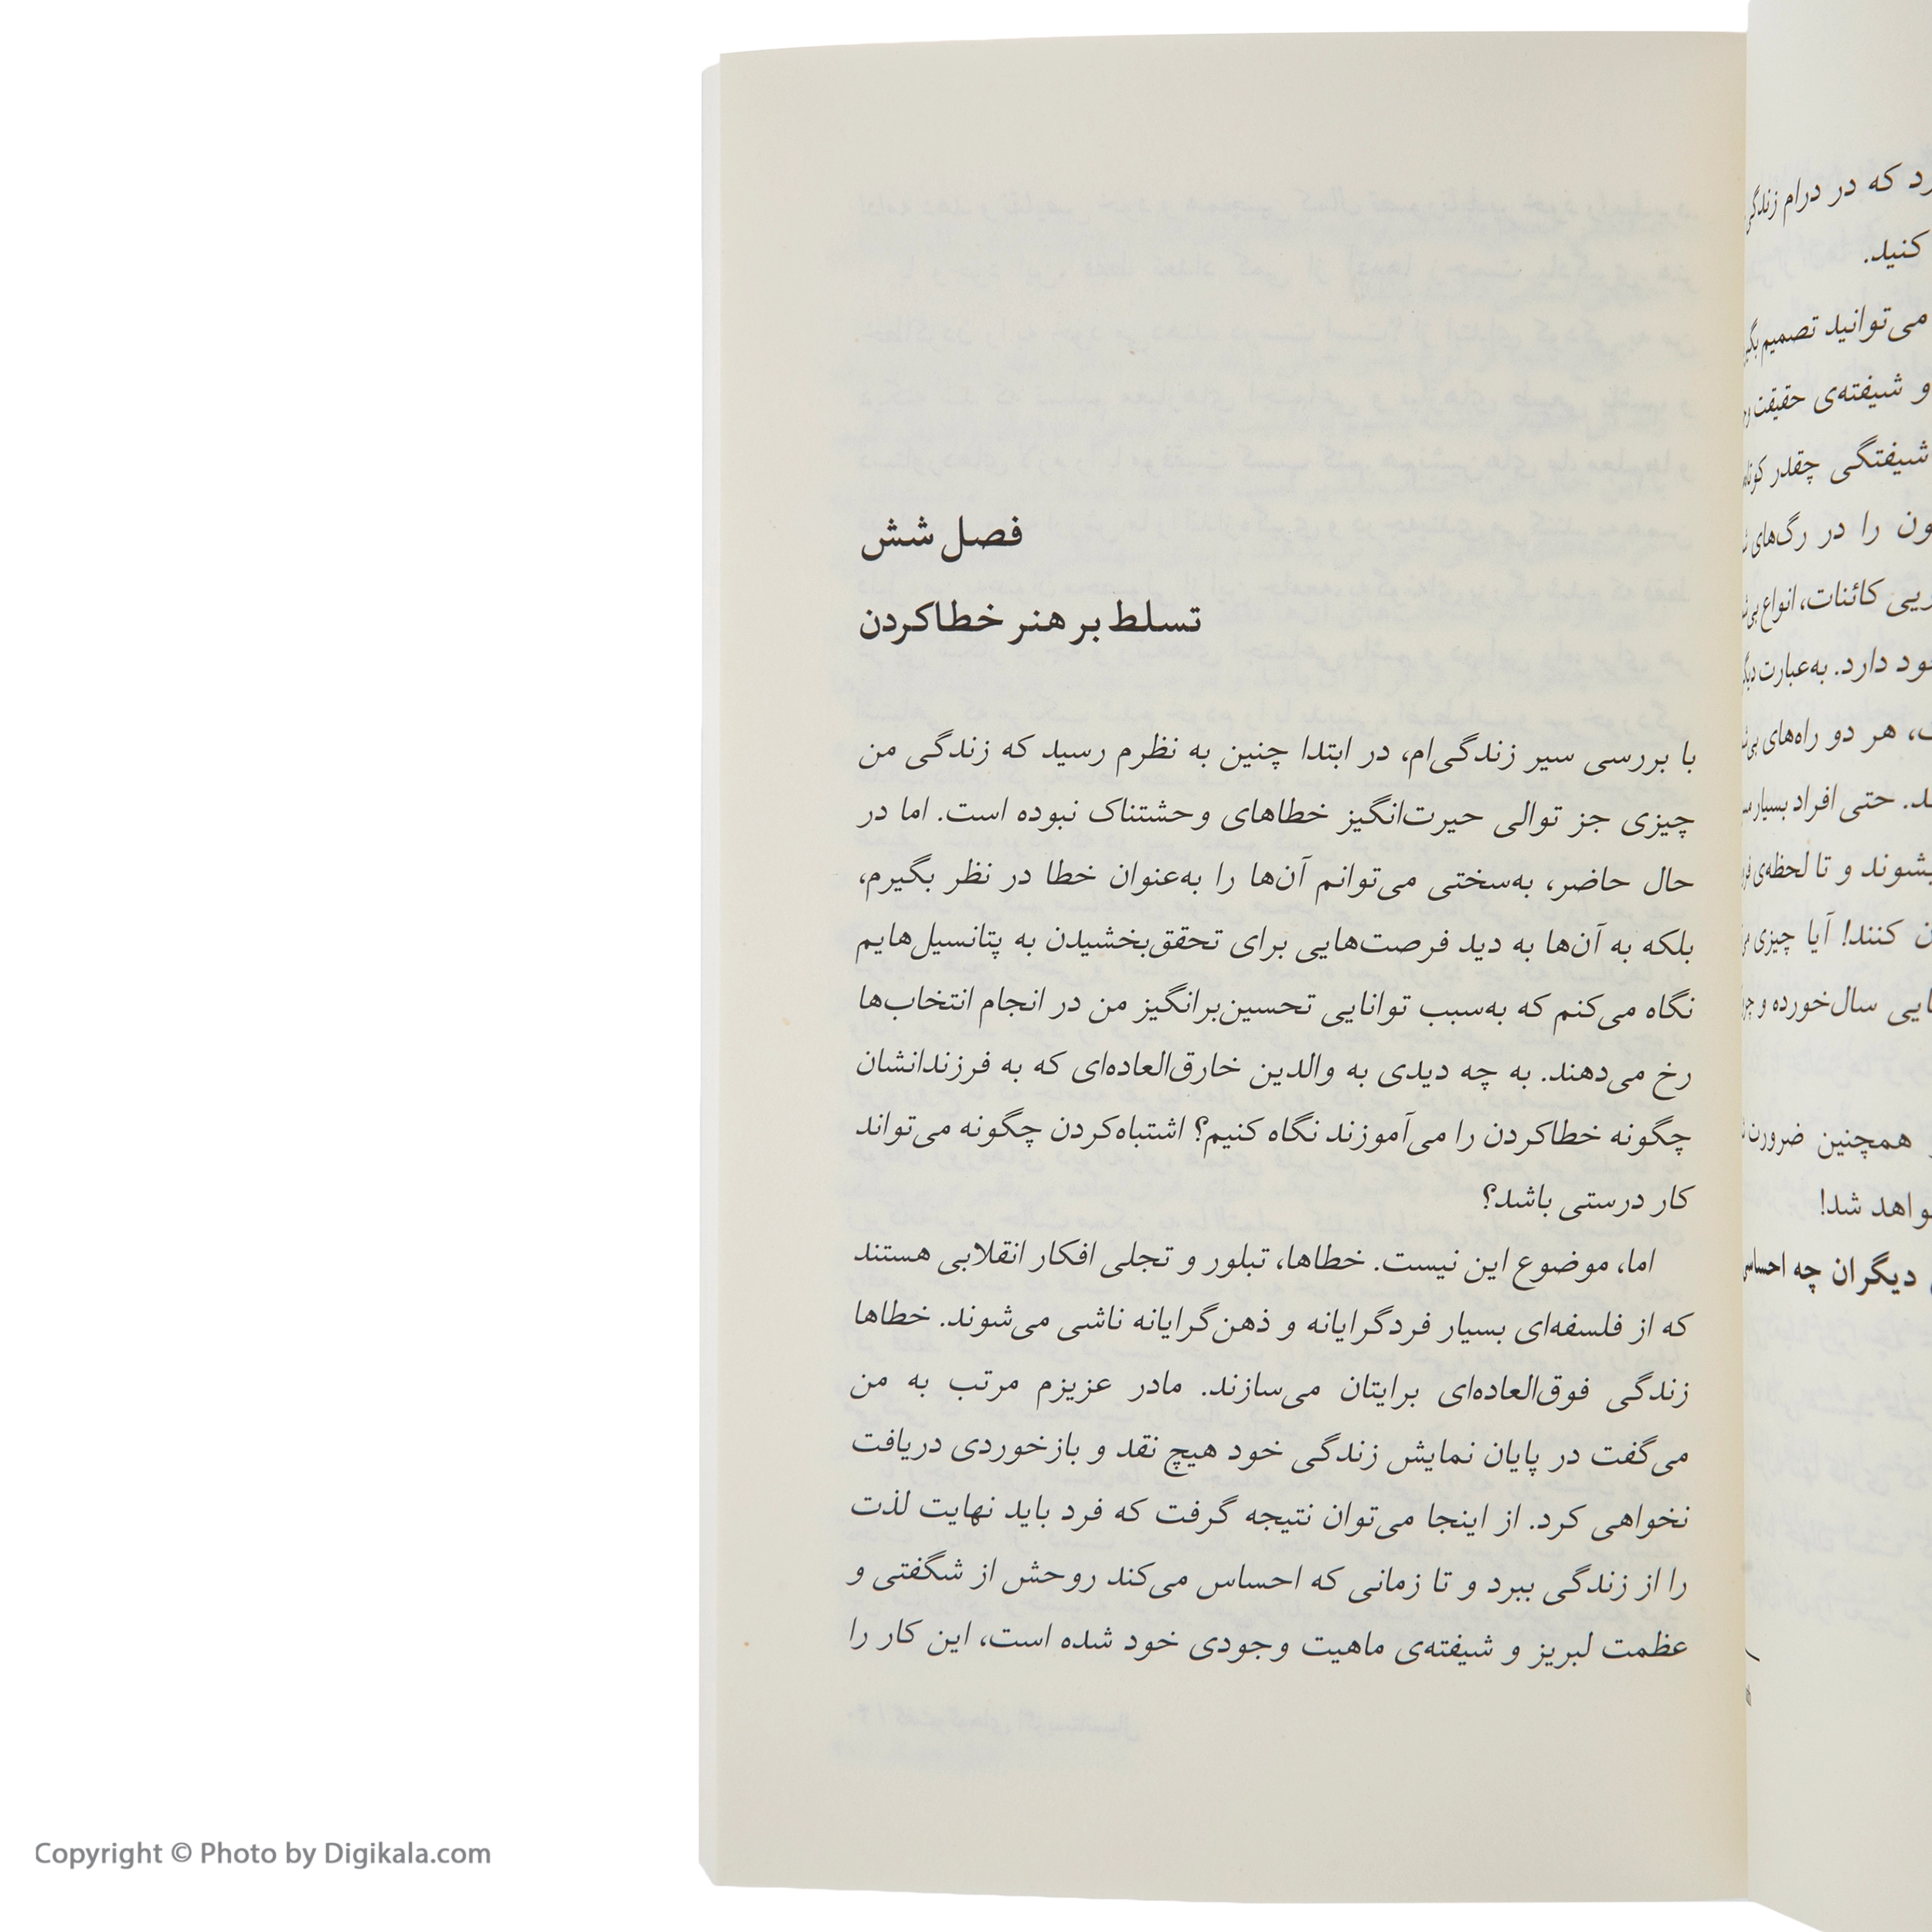 فصل شش
تسلط بر هنر خطاکردن
با بررسی سیر زندگی‌ام، در ابتدا چنین به نظرم رسید که زندگی من
چیزی جز توالی حیرت‌انگیز خطاهای وحشتناک نبوده است. اما در
حال حاضر، به‌سختی می‌توانم آن‌ها را به‌عنوان خطا در نظر بگیرم،
بلکه به آن‌ها به دید فرصت‌هایی برای تحقق‌بخشیدن به پتانسیل‌هایم
نگاه می‌کنم که به‌سبب توانایی تحسین‌برانگیز من در انجام انتخاب‌ها
رخ می‌دهند. به چه دیدی به والدین خارق‌العاده‌ای که به فرزندانشان
چگونه خطاکردن را می‌آموزند نگاه کنیم؟ اشتباه‌کردن چگونه می‌تواند
کار درستی باشد؟
اما، موضوع این نیست. خطاها، تبلور و تجلی افکار انقلابی هستند
که از فلسفه‌ای بسیار فردگرایانه و ذهن‌گرایانه ناشی می‌شوند. خطاها
زندگی فوق‌العاده‌ای برایتان می‌سازند. مادر عزیزم مرتب به من
می‌گفت در پایان نمایش زندگی خود هیچ نقد و بازخوردی دریافت
نخواهی کرد. از اینجا می‌توان نتیجه گرفت که فرد باید نهایت لذت
را از زندگی ببرد و تا زمانی که احساس می‌کند روحش از شگفتی و
عظمت لبریز و شیفته‌ی ماهیت وجودی خود شده است، این کار را
که در درام زندگی
کنید.
می‌توانید تصمیم
و شیفته‌ی حقیقت
شیفتگی چقدر
را در رگ‌های
کائنات، انواع
دارد. به‌عبارت
هر دو راه‌های
حتی افراد بسیار
و تا لحظه‌ی
کنند! آیا چیزی
سال‌خورده و
همچنین
شد!
دیگران چه
Copyright © Photo by Digikala.com